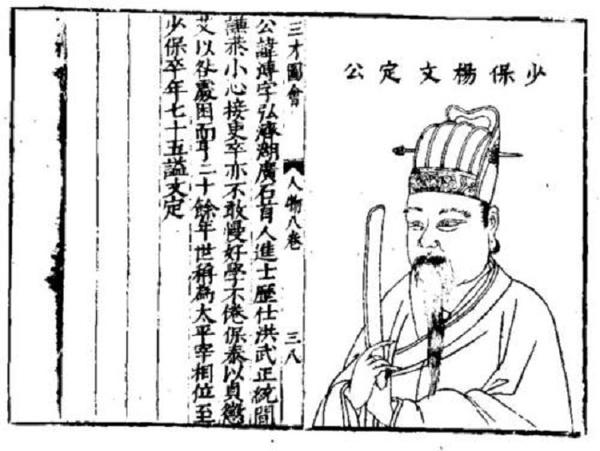 少保楊文定公
三才圖會 人物八卷 三八
公諱溥字弘濟湖廣石首人進士歷仕洪武正統間
謙恭小心接吏卒亦不敢慢好學不倦保泰以貞懲
艾以咎處困而亨二十餘年世稱為太平宰相位至
少保卒年七十五謚文定